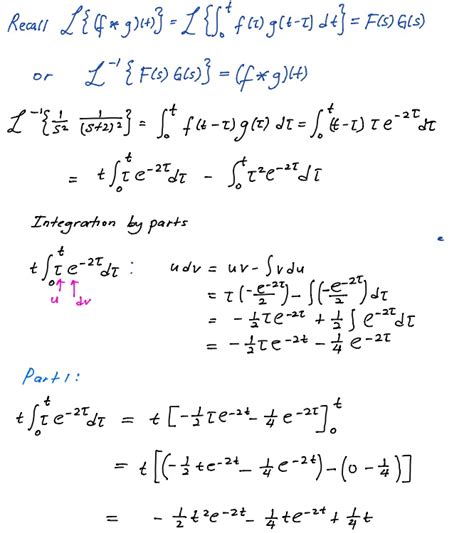 Recall ℒ{(f*g)(t)} = ℒ{∫₀ᵗ f(τ) g(t-τ) dt} = F(s) G(s)
or ℒ⁻¹{F(s) G(s)} = (f*g)(t)
ℒ⁻¹{1/s² 1/(s+2)²} = ∫₀ᵗ f(t-τ) g(τ) dτ = ∫₀ᵗ (t-τ) τ e^(-2τ) dτ
= t ∫₀ᵗ τ e^(-2τ) dτ - ∫₀ᵗ τ² e^(-2τ) dτ
Integration by parts
t ∫₀ᵗ τ e^(-2τ) dτ : u dv = uv - ∫ v du
u dv
= τ(-e^(-2τ)/2) - ∫(-e^(-2τ)/2) dτ
= -1/2 τ e^(-2τ) + 1/2 ∫ e^(-2τ) dτ
= -1/2 τ e^(-2t) - 1/4 e^(-2τ)
Part 1:
t ∫₀ᵗ τ e^(-2τ) dτ = t [-1/2 τ e^(-2t) - 1/4 e^(-2τ)]₀ᵗ
= t [(-1/2 t e^(-2t) - 1/4 e^(-2t)) - (0 - 1/4)]
= -1/2 t² e^(-2t) - 1/4 t e^(-2t) + 1/4 t